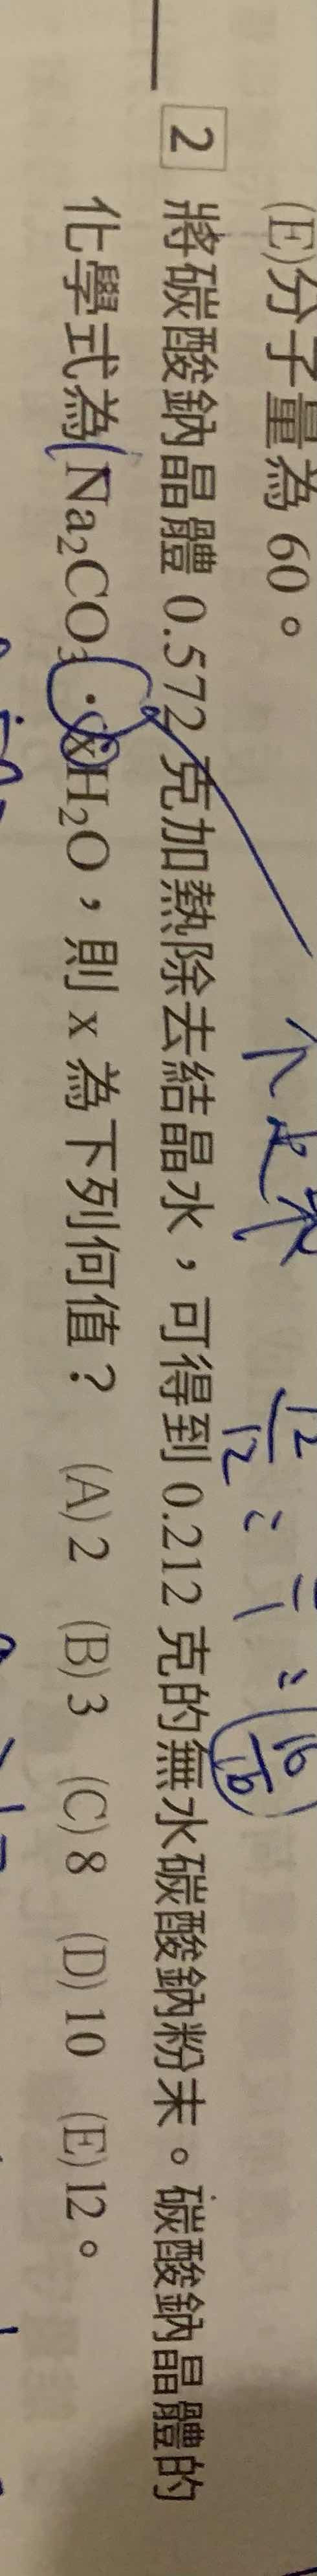 (E)分子量為 60。
2 將碳酸鈉晶體 0.572 克加熱除去結晶水，可得到 0.212 克的無水碳酸鈉粉末。碳酸鈉晶體的
化學式為 Na₂CO₃・xH₂O，則 x 為下列何值？ (A) 2 (B) 3 (C) 8 (D) 10 (E) 12。